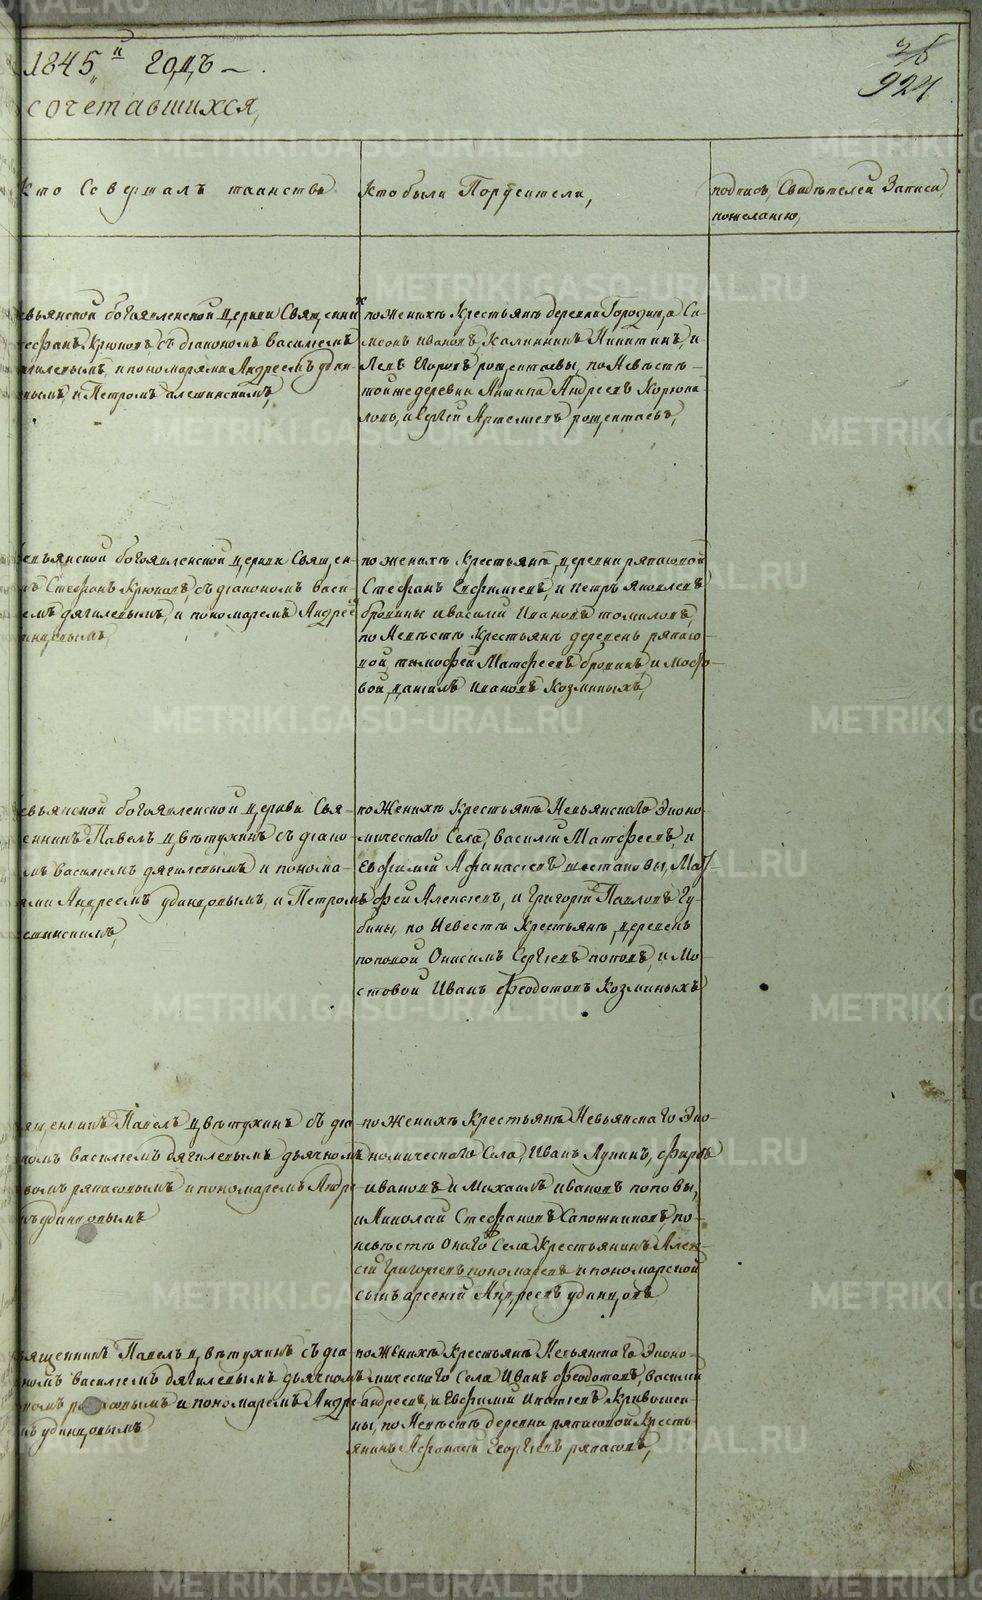 1845й годъ
36
924
сочетавшихся,
Кто Совершалъ таинство
Кто были Поручители,
подпись Свидѣтелей Записи
пожеланію,
евьянской богоявленской церкви Священни
Стефанъ Крюковъ, съ діакономъ Василіемъ
дягилевымъ, и пономарями Андреемъ удин
и Петромъ алешинскимъ,
по женихѣ Крестьянѣ деревни Городища Си
меонъ Ивановъ, Калинникъ Никитинъ, и
Левъ Егоровъ рощектаевы, по Невѣстѣ
тойже деревни Антипа Андреевъ Корюка
ловъ, и Сергѣй Артемьевъ рощектаевъ,
евьянской богоявленской церкви Священ
Стефанъ Крюковъ, съ діакономъ Васи
емъ дягилевымъ, и пономаремъ Андрее
динцовымъ,
по женихѣ Крестьянѣ, деревни ряпасовой
Стефанъ Евфимьевъ, и Петръ Яковлевъ
бровины и василій Ивановъ томиловъ,
по Невѣстѣ Крестьянѣ деревень ряпасо
вой, тимофей Матфеевъ бровинъ, и Мосто
вой, Данилъ Ивановъ Козминыхъ,
евьянской богоявленской Церкви Свя
енникъ Павелъ Цвѣтухинъ съ діако
мъ василіемъ дягилевымъ и понома
ями Андреемъ удинцовымъ, и Петромъ
ешинскимъ,
по Женихѣ Крестьянѣ Невьянскаго Эконо
мическаго Села, Василій Матфеевъ, и
Евфимій Афанасьевъ шестаковы, Мат
фей Алексѣевъ, и Григорій Павловъ Гу
бины, по Невѣстѣ Крестьянѣ, деревень
поповой Онисимъ Сергѣевъ поповъ, и Мо
стовой Иванъ Феодотовъ Козминыхъ
ященникъ Павелъ Цвѣтухинъ съ діа
номъ василіемъ дягилевымъ дьячкомъ
ряпасовымъ и пономаремъ Андре
мъ удинцовымъ
по Женихѣ Крестьянѣ Невьянскаго Эко
номическаго Села, Иванъ Лукинъ, Фирсъ
Ивановъ и Михаилъ Ивановъ поповы,
и Николай Стефановъ Сапожниковъ, по
невѣстѣ Онаго Села Крестьянинъ Алек
сѣй Григорьевъ пономаревъ и пономарской
сынъ арсеній Андреевъ удинцовъ
вященникъ Павелъ Цвѣтухинъ съ діа
номъ василіемъ дягилевымъ дьячком
ряпасовымъ и пономаремъ Андре
мъ удинцовымъ
по Женихѣ Крестьянѣ Невьянскаго Эконо
мическаго Села Иванъ Феодотовъ, Василій
Андреевъ, и Евфимій Ипатьевъ Кривоше
ны, по Невѣстѣ деревни ряпасовой Кресть
янинъ Афанасій Георгіевъ ряпасовъ,